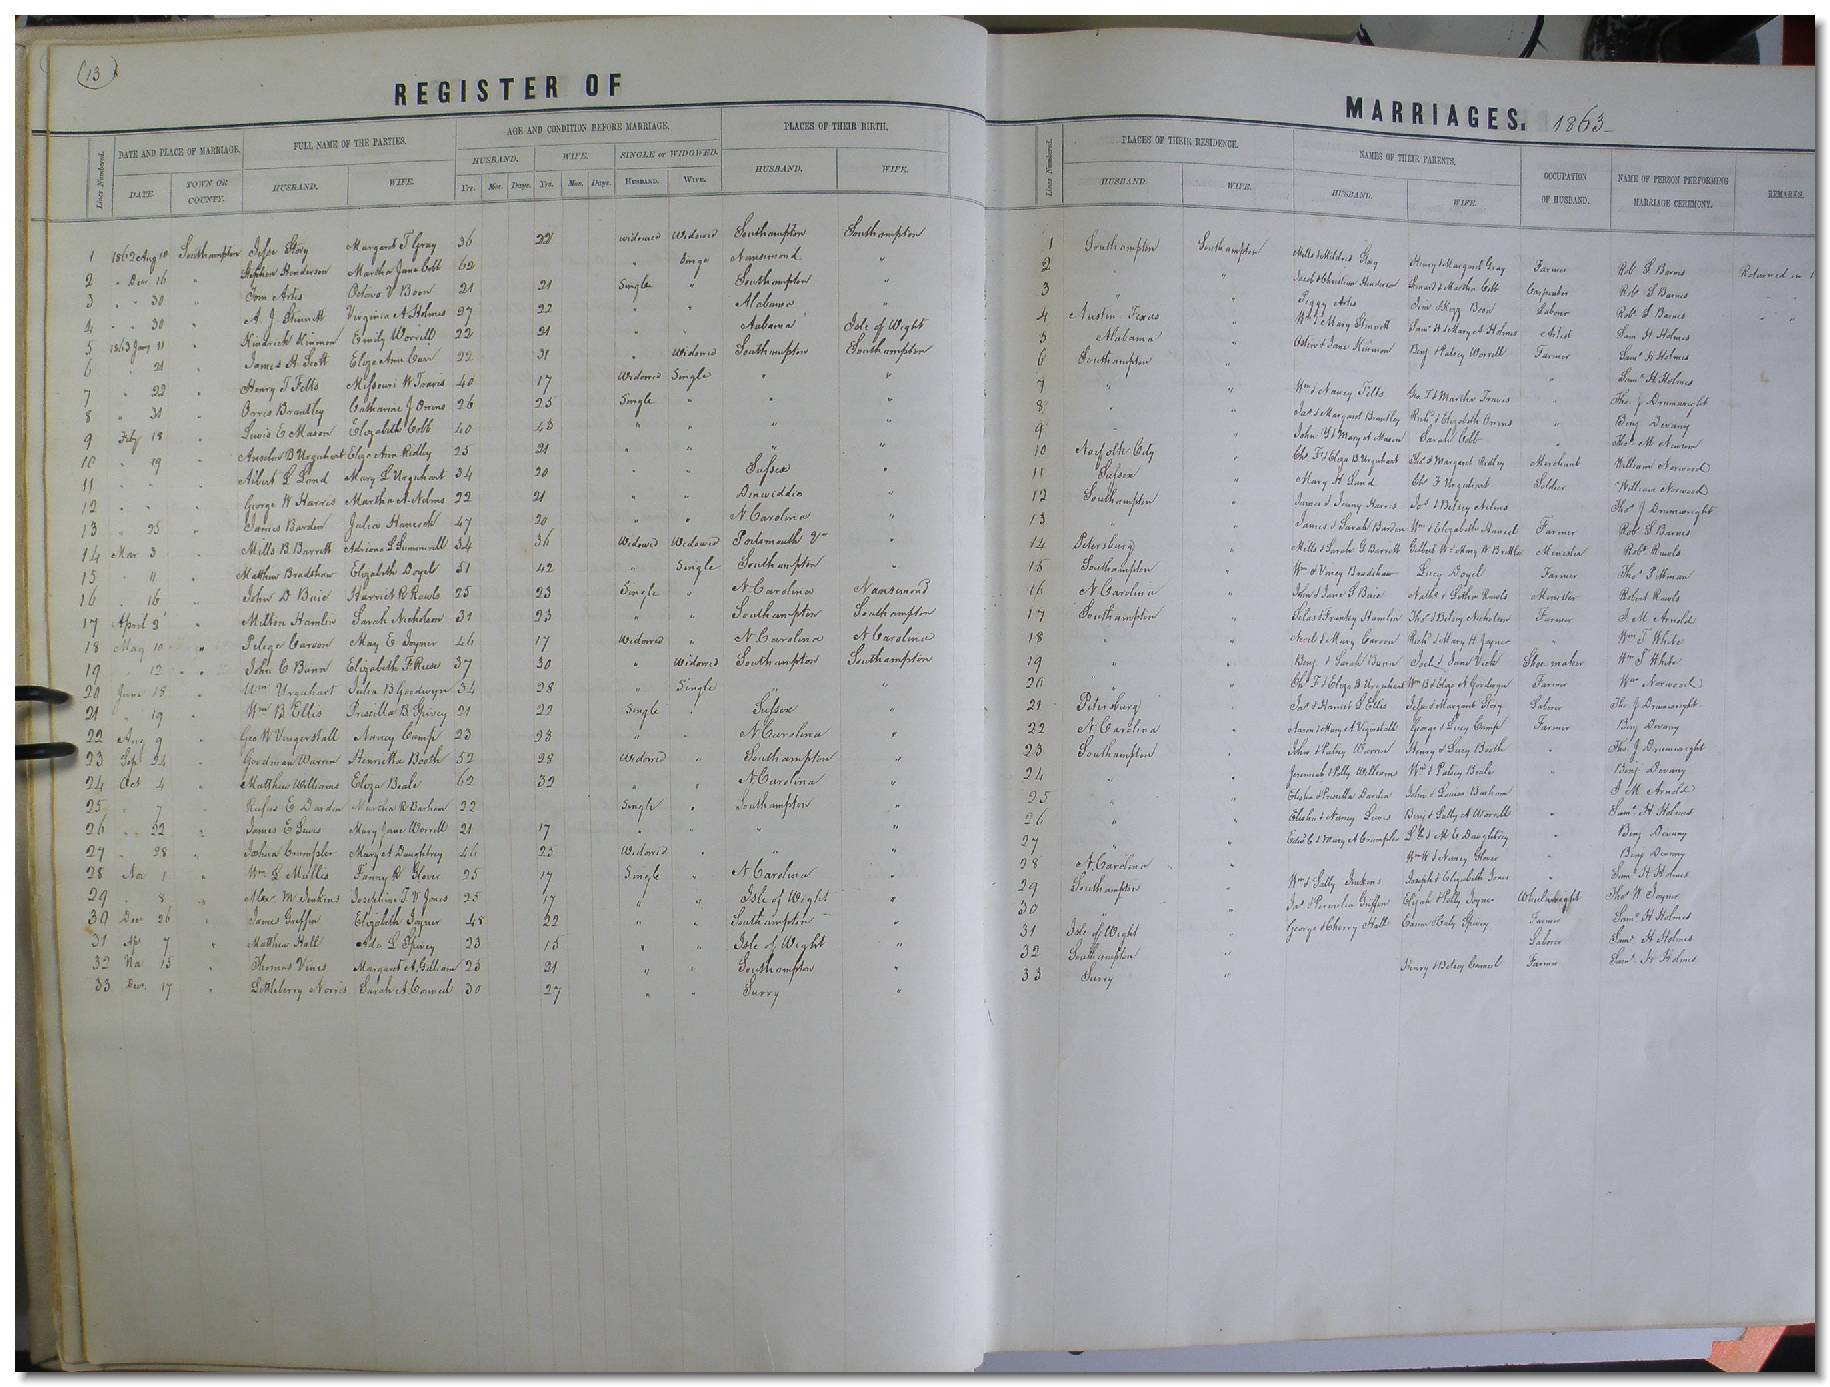 (13)
REGISTER OF
Lines Numbered. DATE AND PLACE OF MARRIAGE. FULL NAME OF THE PARTIES. AGE AND CONDITION BEFORE MARRIAGE. PLACES OF THEIR BIRTH.
HUSBAND. WIFE. SINGLE or WIDOWED.
DATE. TOWN OR COUNTY. HUSBAND. WIFE. Yrs. Mos. Days. Yrs. Mos. Days. HUSBAND. WIFE. HUSBAND. WIFE.
1 1862 Aug 10 Southampton Jesse Story Margaret T Gray 36 22 widowed Widowed Southampton Southampton
2 " Dec 16 " Stephen Henderson Martha Jane Cobb 62 " Singe Nansemond "
3 " " 30 " Tom Artis Octavo V Boon 21 21 Single " Southampton "
4 " " 30 " A. J. Stinnett Virginia A Holmes 27 22 " " Alabama "
5 1863 Jany 11 " Kindrick Kinmon Emily Worrell 22 21 " " Aabama Isle of Wight
6 " 21 " James H Scott Eliza Ann Carr 22 31 " Widowed Southampton Southampton
7 " 22 " Henry T Felts Missouri W Travis 40 17 Widowed Single " "
8 " 31 " Orris Brantley Catharine J Orrins 26 25 Single " " "
9 Feby 18 " Lewis E Mason Elizabeth Cobb 40 48 " " " "
10 " 19 " Anselm B Urquhart Eliza Ann Ridley 25 21 " " " "
11 " " " Albert L Land Mary L Urquhart 34 20 " " Sussex "
12 " " " George W Harris Martha A Nelms 22 21 " " Dinwiddie "
13 " 25 " James Barden Julia Hancock 47 20 " " N Carolina "
14 Mar 3 " Mills B Barrett Adriana L Summerell 34 36 Widowed Widowed Portsmouth Va "
15 " 11 " Matthew Bradshaw Elizabeth Doyel 51 42 " Single Southampton "
16 " 16 " John D Buie Harriet R Rawls 25 23 Single " N Carolina Nansemond
17 April 2 " Milton Hamlin Sarah Nicholson 31 23 " " Southampton Southampton
18 May 10 " Pelege Carson May E Joyner 46 17 Widowed " N Carolina N Carolina
19 " 12 " John C Bunn Elizabeth F Reese 37 30 " Widowed Southampton Southampton
20 June 18 " Wm Urquhart Julia B Goodwyn 34 28 " Single " "
21 " 19 " Wm B Ellis Priscilla B Spivey 21 22 Single " Sussex "
22 Aug 9 " Geo W Vingerstall Nancy Camp 23 23 " " N Carolina "
23 Sep 24 " Goodman Warren Henrietta Booth 52 28 Widowed " Southampton "
24 Oct 4 " Matthew Williams Eliza Beale 62 32 " " N Carolina "
25 " 7 " Rufus E Darden Martha R Barham 22 Single " Southampton "
26 " 22 " James E Lewis Mary Jane Worrell 21 17 " " " "
27 " 28 " Joshua Crumpler Mary A Daughtrey 46 23 Widowed " " "
28 Nov 1 " Wm L Mullis Fanny R Glover 25 17 Single " N Carolina "
29 " 8 " Alex M Jenkins Josephine T. V Jones 25 17 " " Isle of Wight "
30 Dec 26 " James Griffin Elizabeth Joyner 48 22 " " Southampton "
31 Apr 7 " Matthew Hall Ada L Spivey 23 15 " " Isle of Wight "
32 No 15 " Thomas Vines Margaret A. Gilliam 23 21 " " Southampton "
33 Dec. 17 " Littleberry Norris Sarah A Council 30 27 " " Surry "
MARRIAGES. 1863
Lines Numbered. PLACES OF THEIR RESIDENCE. NAMES OF THEIR PARENTS. OCCUPATION OF HUSBAND. NAME OF PERSON PERFORMING MARRIAGE CEREMONY. REMARKS.
HUSBAND. WIFE. HUSBAND. WIFE.
1 Southampton Southampton Mills & Mildred Story Henry & Margaret Gray Farmer Robt S Barnes Returned in 1
2 " " Jacob & Christian Henderson & Martha Cobb Carpenter Robt S Barnes "
3 " " Peggy Artis Boon Labour Robt S Barnes "
4 Austin Texas " Wm & Mary Stinnett Saml H & Mary A Holmes Artist Sam H Holmes
5 Alabama " & Jane Kinmon Benj & Patsey Worrell Farmer Saml H Holmes
6 Southampton " Saml H Holmes
7 " " Wm & Nancy Felts Geo. T & Martha Travis " Tho. J Drumwright
8 " " Jas & Margaret Brantley Robt & Elizabeth Orrins " Benj Devany
9 " " John Y & Mary A Mason Sarah Cobb " Thos M Newsom
10 Norfolk City " Chs F & Eliza B Urquhart Thos & Margaret Ridley Merchant William Norwood
11 Sussex " Mary H Land Chs F Urquhart Soldier William Norwood
12 Southampton " James & Jenny Harris Jos & Betsey Nelms Thos J Drumwright
13 " " James & Sarah Barden Wm & Elizabeth Farmer Robt S Barnes
14 Petersburg " Mills & Sarah G Barrett Gilbert W & Amy W Minister Robt Rawls
15 Southampton " Wm & Viney Bradshaw Lucy Doyel Farmer Thos Pittman
16 N Carolina " John & Jane L Buie Nathl & Esther Rawls Minister Robert Rawls
17 Southampton " Silas & Frankey Hamlin Thos & Betsy Nicholson Farmer J M Arnold
18 " " Noel & Mary Carson Robt & Mary H Joyner " Wm T White
19 " " Benj & Sarah Bunn Joel & Jane Vick Shoe maker Wm T White
20 " " Chs F & Eliza B Urquhart Wm B & Eliza N Goodwyn Farmer Wm Norwood
21 Petersburg " Jas & Harriet L Ellis Jesse & Margaret Story Labour Tho. J Drumwright
22 N Carolina " Aaron & Mary A Vigerstall George & Lucy Camp Farmer Benj Devany
23 Southampton " John & Patsey Warren Henry & Lucy Booth " Tho J Drumwright
24 " " Jeremiah & Polly Williams Wm & Patsey Beale " Benj Devany
25 " " Elisha & Priscilla Darden John & Louisa Barham J M Arnold
26 " " Elisha & Nancy Lewis Benj & Sally A Worrell " Saml H Holmes
27 " " Edw. C & Mary A Crumpler & M E Daughtrey " Benj Devany
28 N. Carolina " Wm W & Nancy Glover " Benj Devany
29 Southampton " Wm & Sally Jenkins Joseph & Elizabeth Jones " Saml H Holmes
30 " " Jas & Permelia Griffin Elijah & Polly Joyner Wheelwright Thos W Joyner
31 Isle of Wight " George & Cherry Hall & Katy Spivey Farmer Saml H Holmes
32 Southampton " Laborer Saml H Holmes
33 Surry " Henry & Betsey Council Farmer Saml H Holmes